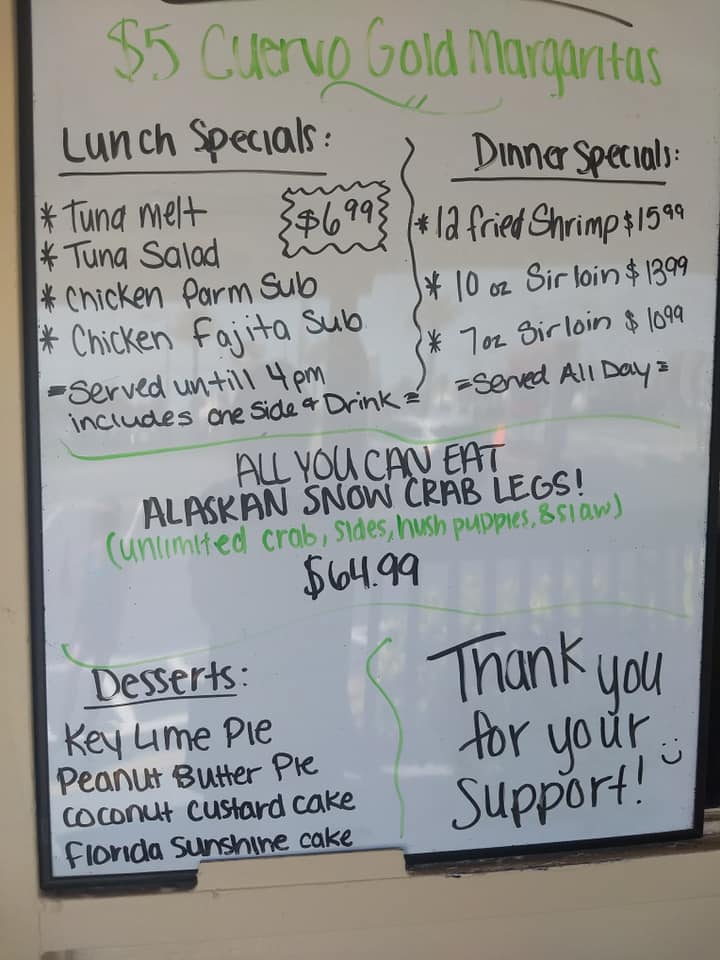 $5 Cuervo Gold Margaritas
Lunch Specials:
* Tuna melt
$6.99
* Tuna Salad
* Chicken Parm Sub
* Chicken Fajita Sub
=Served untill 4pm
includes one Side & Drink=
Dinner Specials:
* 12 fried Shrimp $15.99
* 10 oz Sirloin $13.99
* 7oz Sirloin $10.99
=Served All Day=
ALL YOU CAN EAT
ALASKAN SNOW CRAB LEGS!
(unlimited crab, sides, hush puppies, & slaw)
$64.99
Desserts:
Key Lime Pie
Peanut Butter Pie
Coconut Custard cake
Florida Sunshine cake
Thank you
for your
Support!